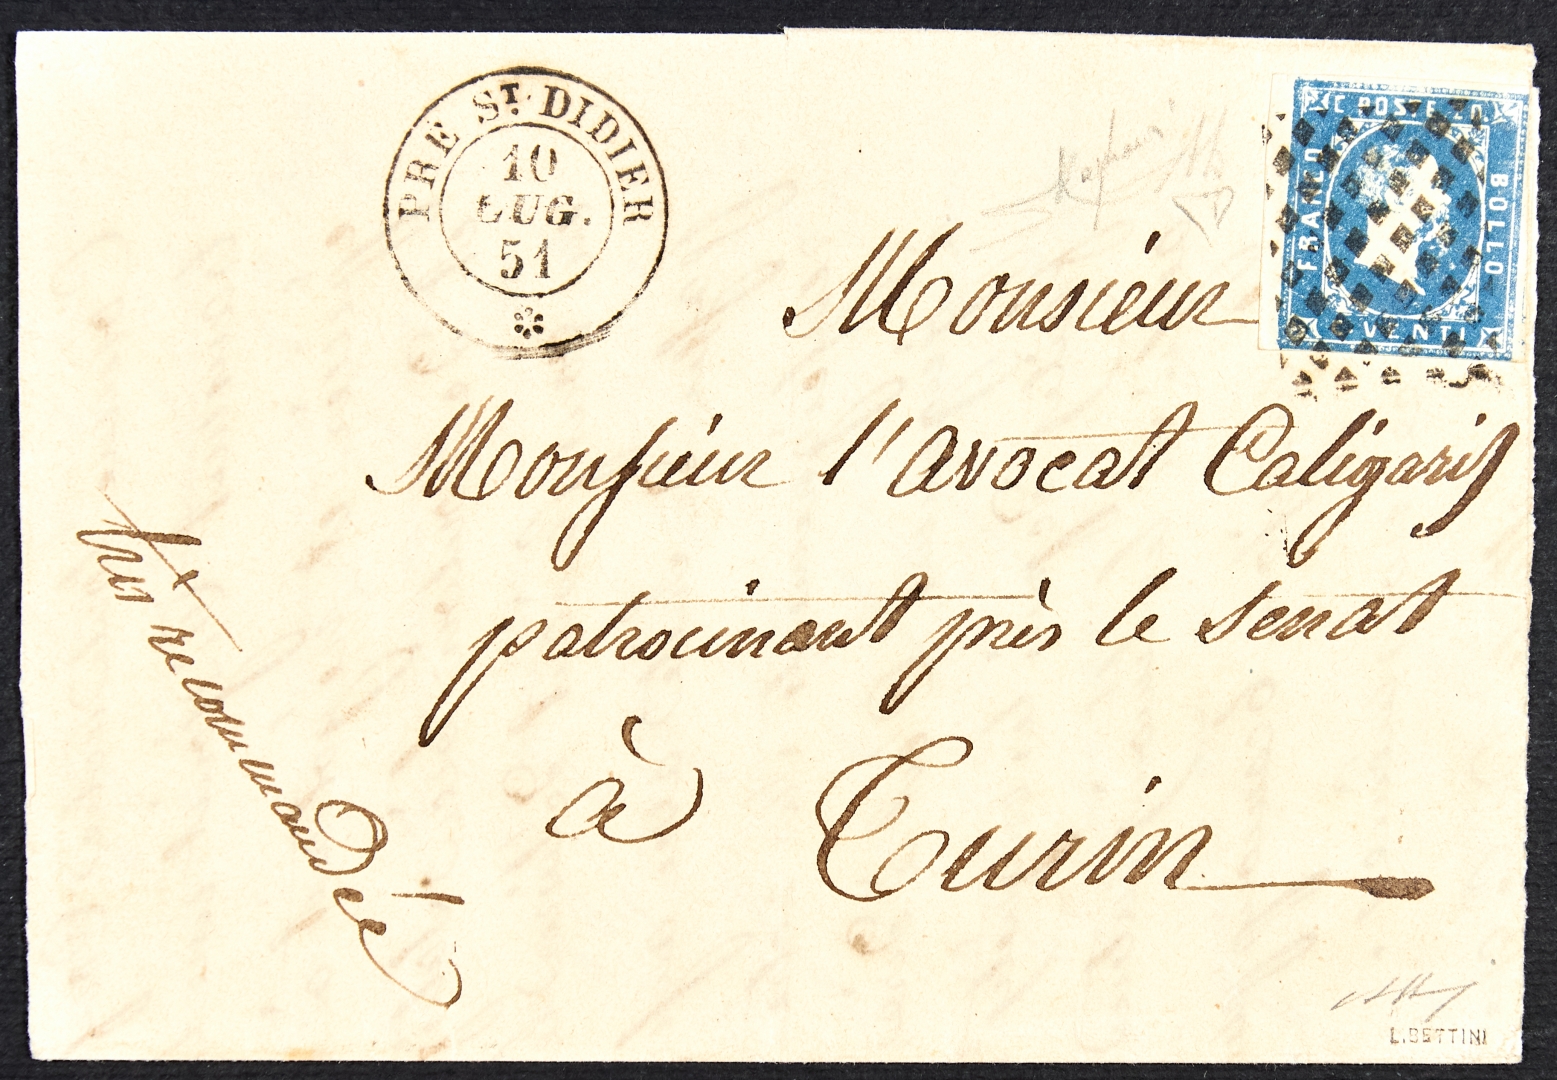 PRE ST. DIDIER
10
LUG.
51
C. POSTE 20.
FRANCO
BOLLO
C. VENTI
Monsieur
Monsieur l'avocat Caligaris
patrocinant près le senat
à Turin
très recommandée
L. BETTINI